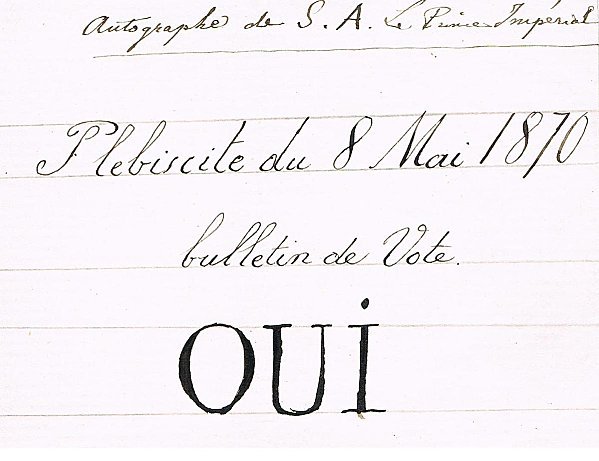 Autographe de S. A. Le Prince Impérial
Plebiscite du 8 Mai 1870
bulletin de Vote.
OUi